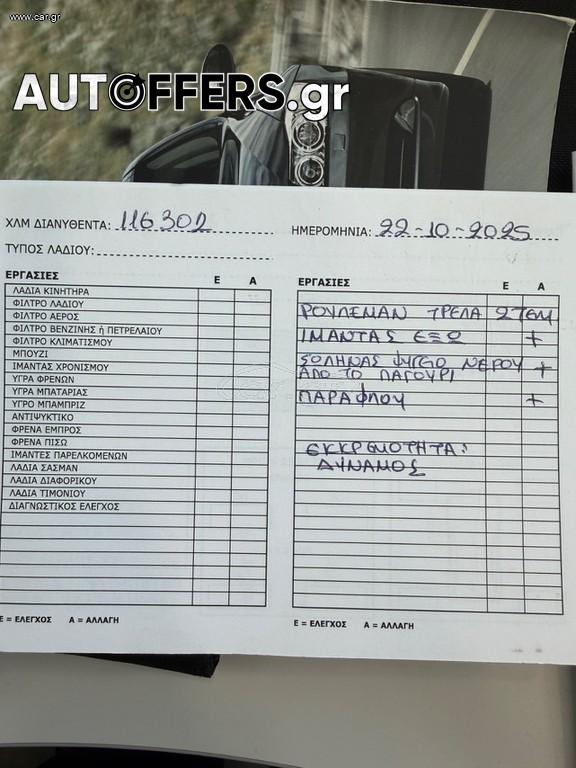 www.car.gr
AUTOFFERS.gr
ΧΛΜ ΔΙΑΝΥΘΕΝΤΑ: 116302
ΗΜΕΡΟΜΗΝΙΑ: 22-10-2025
ΤΥΠΟΣ ΛΑΔΙΟΥ:
ΕΡΓΑΣΙΕΣ Ε Α
ΛΑΔΙΑ ΚΙΝΗΤΗΡΑ
ΦΙΛΤΡΟ ΛΑΔΙΟΥ
ΦΙΛΤΡΟ ΑΕΡΟΣ
ΦΙΛΤΡΟ ΒΕΝΖΙΝΗΣ ή ΠΕΤΡΕΛΑΙΟΥ
ΦΙΛΤΡΟ ΚΛΙΜΑΤΙΣΜΟΥ
ΜΠΟΥΖΙ
ΙΜΑΝΤΑΣ ΧΡΟΝΙΣΜΟΥ
ΥΓΡΑ ΦΡΕΝΩΝ
ΥΓΡΑ ΜΠΑΤΑΡΙΑΣ
ΥΓΡΟ ΜΠΑΜΠΡΙΖ
ΑΝΤΙΨΥΚΤΙΚΟ
ΦΡΕΝΑ ΕΜΠΡΟΣ
ΦΡΕΝΑ ΠΙΣΩ
ΙΜΑΝΤΕΣ ΠΑΡΕΛΚΟΜΕΝΩΝ
ΛΑΔΙΑ ΣΑΣΜΑΝ
ΛΑΔΙΑ ΔΙΑΦΟΡΙΚΟΥ
ΛΑΔΙΑ ΤΙΜΟΝΙΟΥ
ΔΙΑΓΝΩΣΤΙΚΟΣ ΕΛΕΓΧΟΣ
Ε = ΕΛΕΓΧΟΣ Α = ΑΛΛΑΓΗ
ΕΡΓΑΣΙΕΣ Ε Α
ΡΟΥΛΕΜΑΝ ΤΡΕΛΑ 2ΤΕΜ
ΙΜΑΝΤΑΣ ΕΞΩ +
ΣΟΛΗΝΑΣ ΨΥΓΕΙΟ ΝΕΡΟΥ +
ΑΠΟ ΤΟ ΠΑΓΟΥΡΙ
ΠΑΡΑΦΛΟΥ +
ΕΚΚΡΕΜΟΤΗΤΑ:
ΔΥΝΑΜΟΣ
Ε = ΕΛΕΓΧΟΣ Α = ΑΛΛΑΓΗ